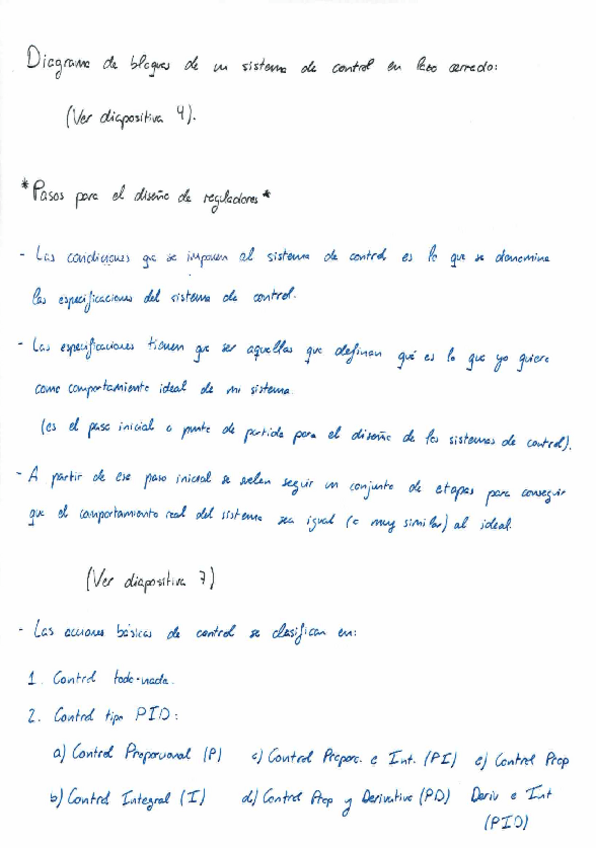 Diagrama de bloques de un sistema de control en lazo cerrado:
(Ver diapositiva 4).
*Pasos para el diseño de reguladores*
- Las condiciones que se imponen al sistema de control es lo que se denomina
las especificaciones del sistema de control.
- Las especificaciones tienen que ser aquellas que definan qué es lo que yo quiero
como comportamiento ideal de mi sistema.
(es el paso inicial o punto de partida para el diseño de los sistemas de control).
- A partir de ese paso inicial se suelen seguir un conjunto de etapas para conseguir
que el comportamiento real del sistema sea igual (o muy similar) al ideal.
(Ver diapositiva 7)
- Las acciones básicas de control se clasifican en:
1. Control todo-nada.
2. Control tipo PID:
a) Control Proporcional (P) c) Control Proporc. e Int. (PI) e) Control Prop
b) Control Integral (I) d) Control Prop y Derivativo (PD) Deriv e Int
(PID)